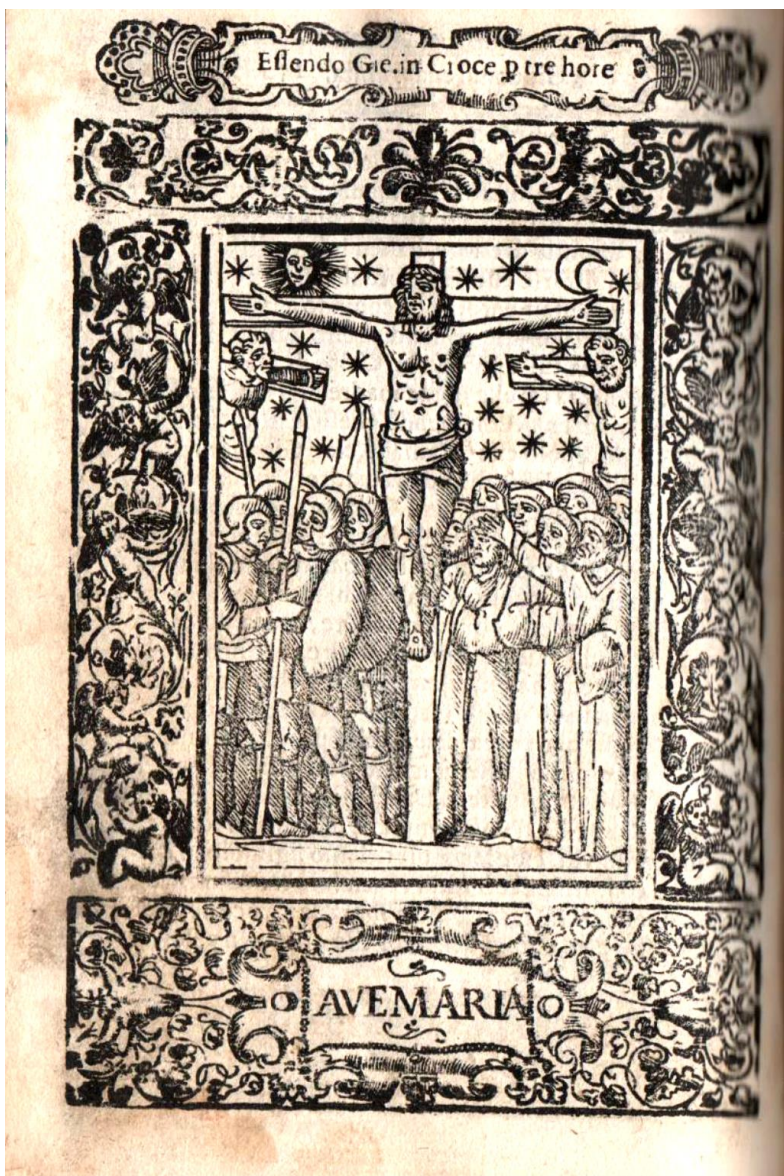 Essendo Gie. in Croce ꝑ tre hore
AVEMARIA